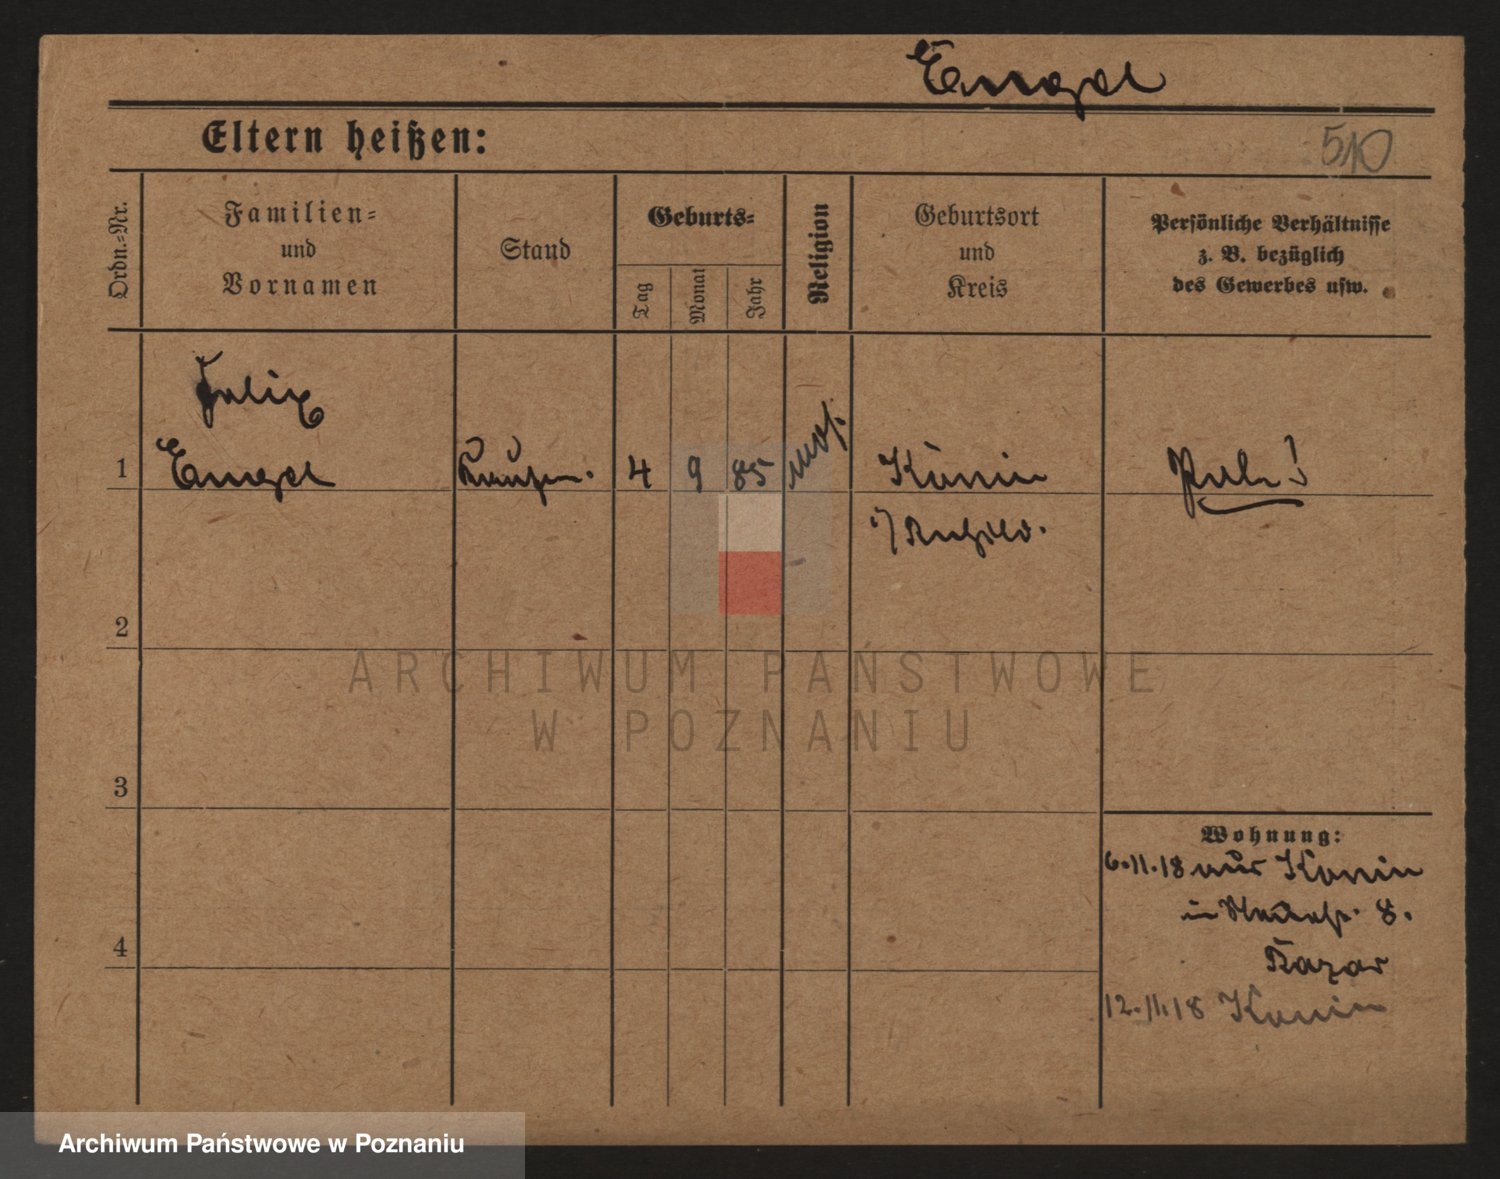 Engel
Eltern heißen:
510
Ordn.-Nr.
Familien-
und
Vornamen
Stand
Geburts-
Tag
Monat
Jahr
Religion
Geburtsort
und
Kreis
Persönliche Verhältnisse
z. B. bezüglich
des Gewerbes usw.
Felix
1 Engel 4 9 85 mos. Konin
i/ Rußld.
2
3
4
Wohnung:
6.11.18 aus Konin
in 8.
12.11.18 Konin
ARCHIWUM PAŃSTWOWE
W POZNANIU
Archiwum Państwowe w Poznaniu